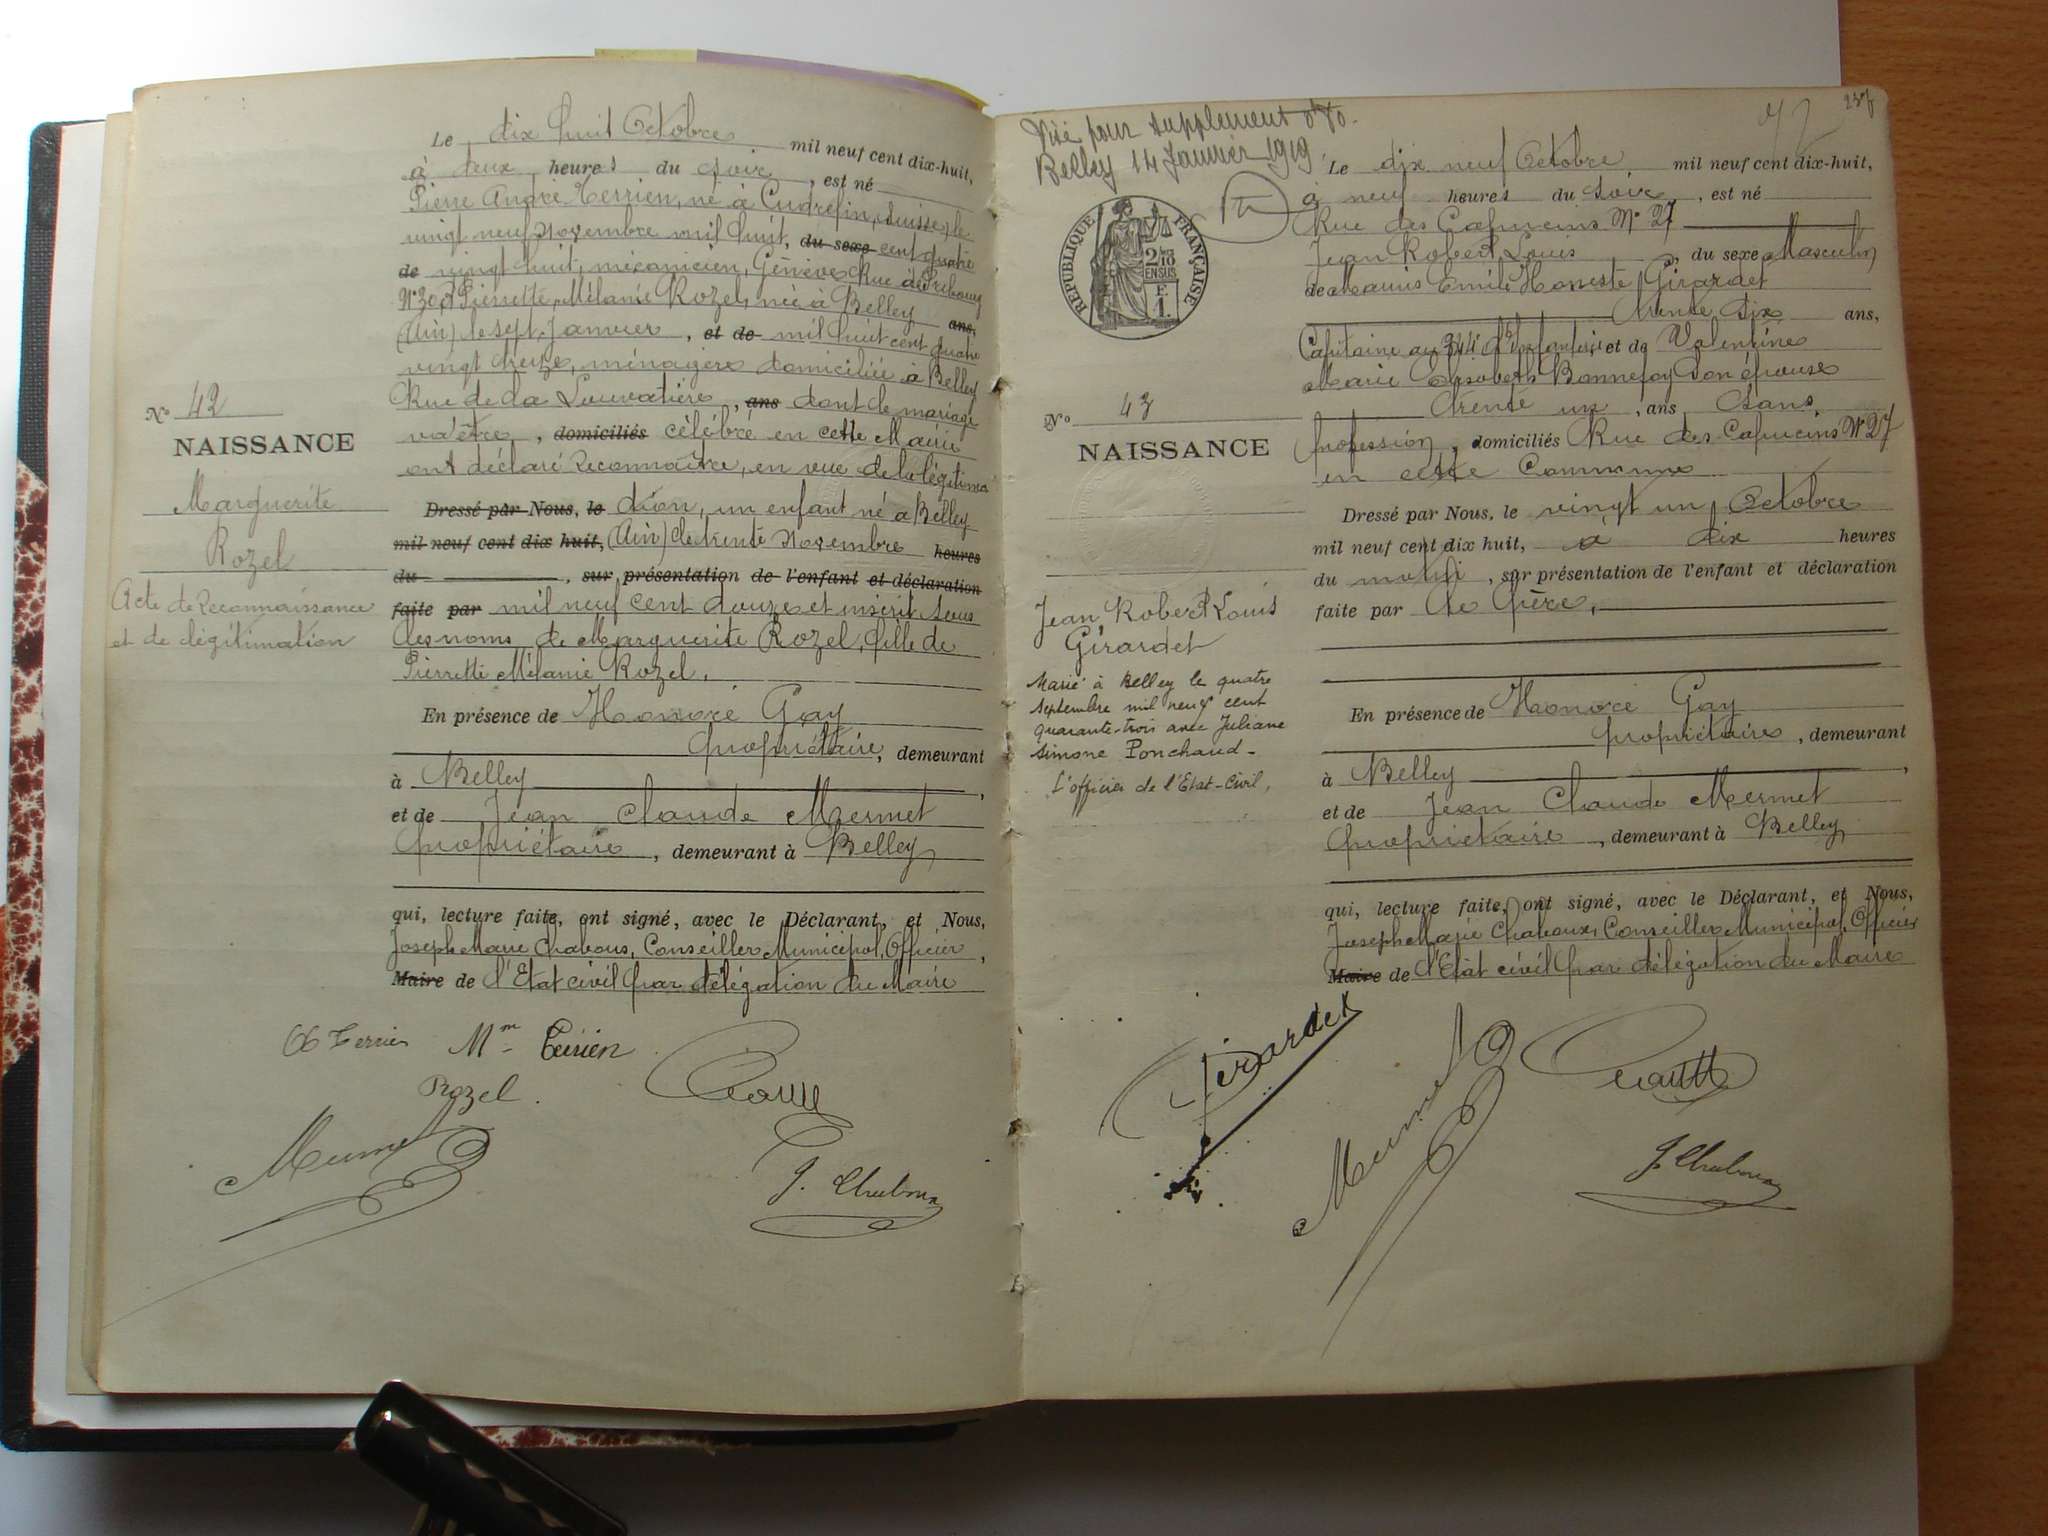 Le dix huit Octobre mil neuf cent dix-huit,
à deux heures du soir, est né
Pierre André Terrien, né à Cudrefin, (Suisse) le
vingt neuf Novembre mil huit, du sexe cent quatre
de vingt huit, mécanicien, Genève Rue de Fribourg
N° 30, & Pierrette Mélanie Rozel, née à Belley ans,
(Ain) le sept Janvier, et de mil huit cent quatre
vingt treize, ménagère domiciliée à Belley
Rue de la Louvatière, ans dont le mariage
va être, domiciliés célébré en cette Mairie
ont déclaré Reconnaître, en vue de la légitima
Dressé par Nous, le tion, un enfant né à Belley
mil neuf cent dix huit, (Ain) le trente Novembre heures
du , sur présentation de l'enfant et déclaration
faite par mil neuf cent douze et inscrit sous
les noms de Marguerite Rozel, fille de
Pierrette Mélanie Rozel.
En présence de Honoré Gay
propriétaire, demeurant
à Belley,
et de Jean Claude Mermet
propriétaire, demeurant à Belley
qui, lecture faite, ont signé, avec le Déclarant, et Nous,
Joseph Marie Chaboux, Conseiller Municipal, Officier,
Maire de l'Etat civil par délégation du Maire
N° 42
NAISSANCE
Marguerite
Rozel
Acte de Reconnaissance
et de légitimation
Terrien Mme Terrien
Rozel.
Mermet
J. Chaboux
Visé pour supplément
Belley 14 Janvier 1919
RÉPUBLIQUE FRANÇAISE
2/10
EN SUS
F.
1.
72
Le dix neuf Octobre mil neuf cent dix-huit,
à neuf heures du soir, est né
Rue des Capucins N° 27
Jean Robert Louis, du sexe Masculin
de Mauris Emile Honeste Girardet
trente six ans,
Capitaine au 344e d'Infanterie et de Valentine
Marie Elisabeth Bonnefoy son épouse
trente un, ans, sans
profession, domiciliés Rue des Capucins N° 27
en cette Commune
Dressé par Nous, le vingt un Octobre
mil neuf cent dix huit, à dix heures
du matin, sur présentation de l'enfant et déclaration
faite par le père,
En présence de Honoré Gay
propriétaire, demeurant
à Belley,
et de Jean Claude Mermet
propriétaire, demeurant à Belley
qui, lecture faite, ont signé, avec le Déclarant, et Nous,
Joseph Marie Chaboux, Conseiller Municipal, Officier
Maire de l'Etat civil par délégation du Maire
N° 43
NAISSANCE
Jean Robert Louis
Girardet
Marié à Belley le quatre
septembre mil neuf cent
quarante-trois avec Juliane
Simone Ponchaud-
L'officier de l'Etat-Civil,
Girardet
Mermet
J. Chaboux